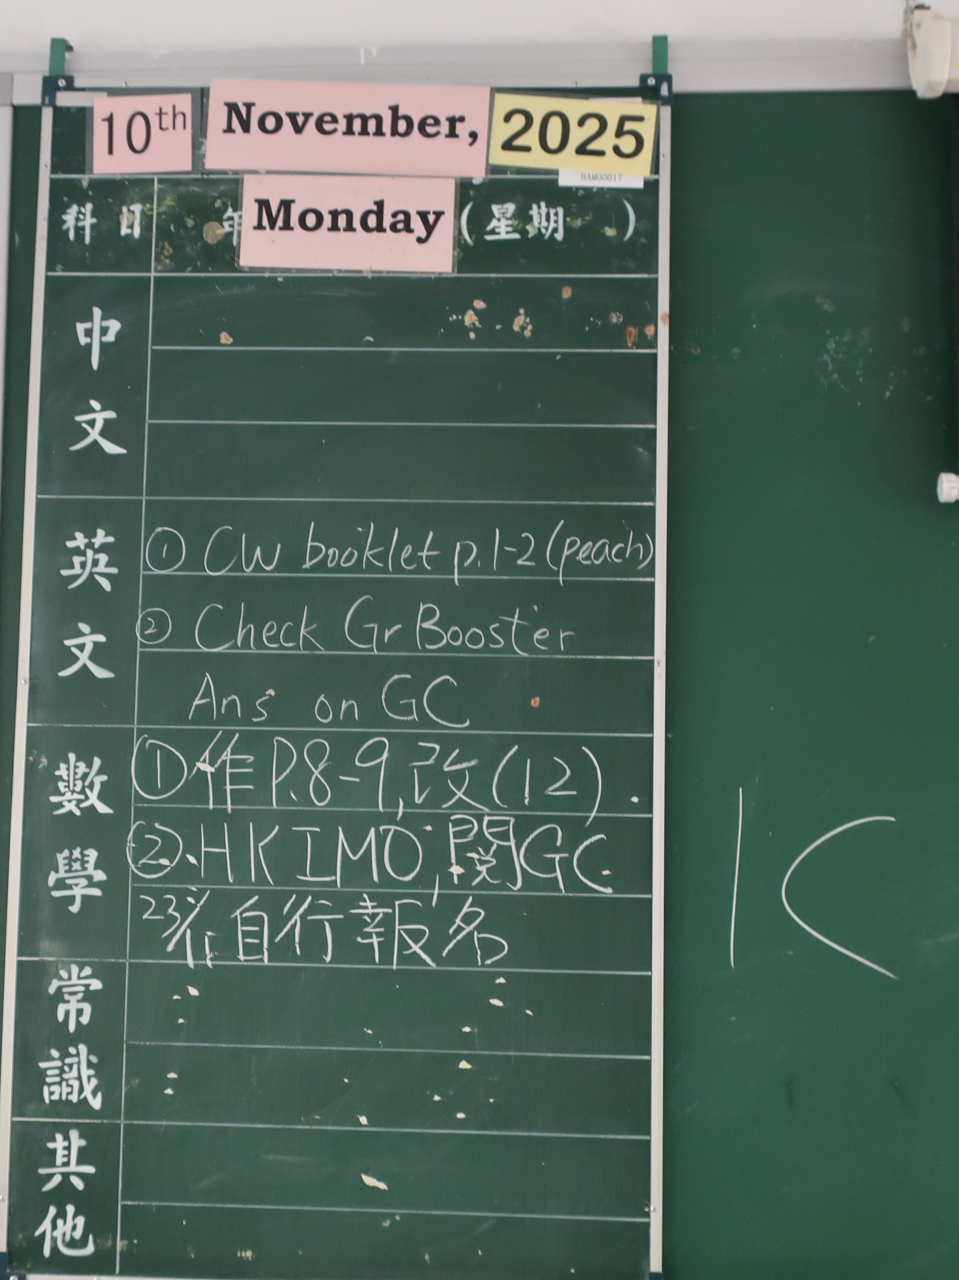 10th November, 2025
HAM00017
Monday
科目 年 (星期 )
中文
英文
① CW booklet p.1-2 (peach)
② Check Gr Booster
Ans on GC
數學
① 作 P.8-9, 改(12).
② HKIMO, 閱GC
23/11 自行報名
常識
其他
1C